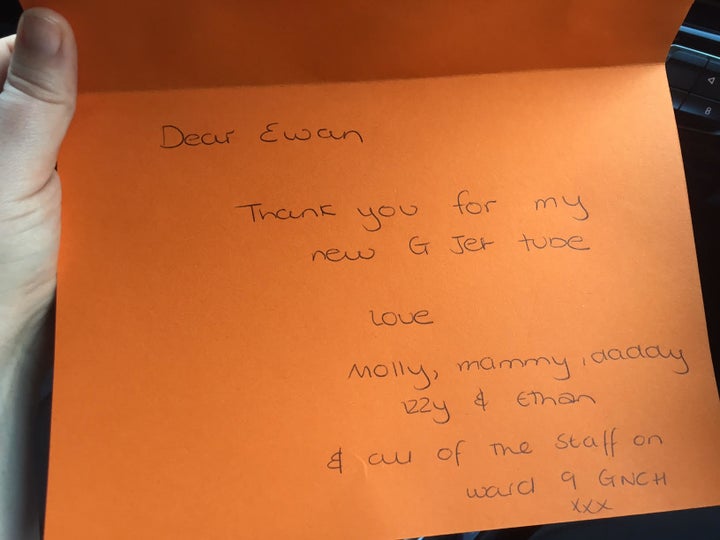 Dear Ewan
Thank you for my
new G Jet tube
love
Molly, mammy, daddy
izzy & Ethan
& all of the staff on
ward 9 GNCH
xxx